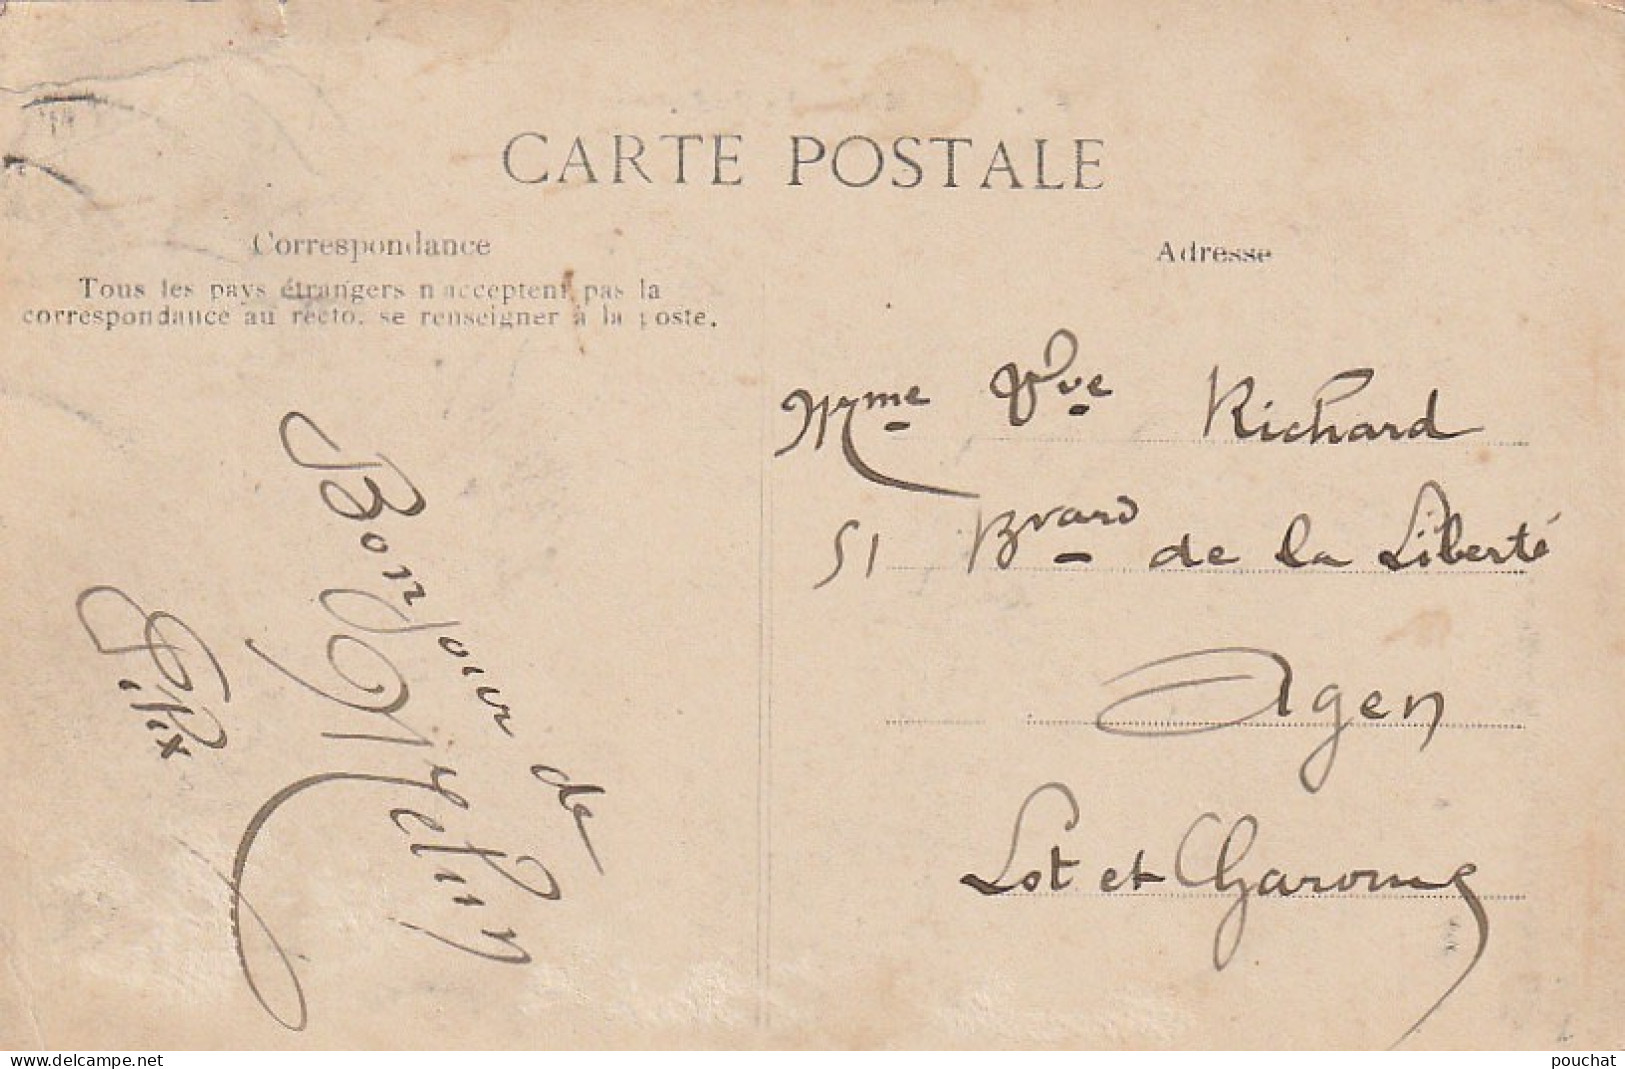 CARTE POSTALE
Correspondance
Tous les pays étrangers n'acceptent pas la
correspondance au recto, se renseigner à la poste.
Bonjour de
Melun
Adresse
Mme Vve Richard
51 Bvard de la Liberté
Agen
Lot et Garonne
www.delcampe.net
pouchat